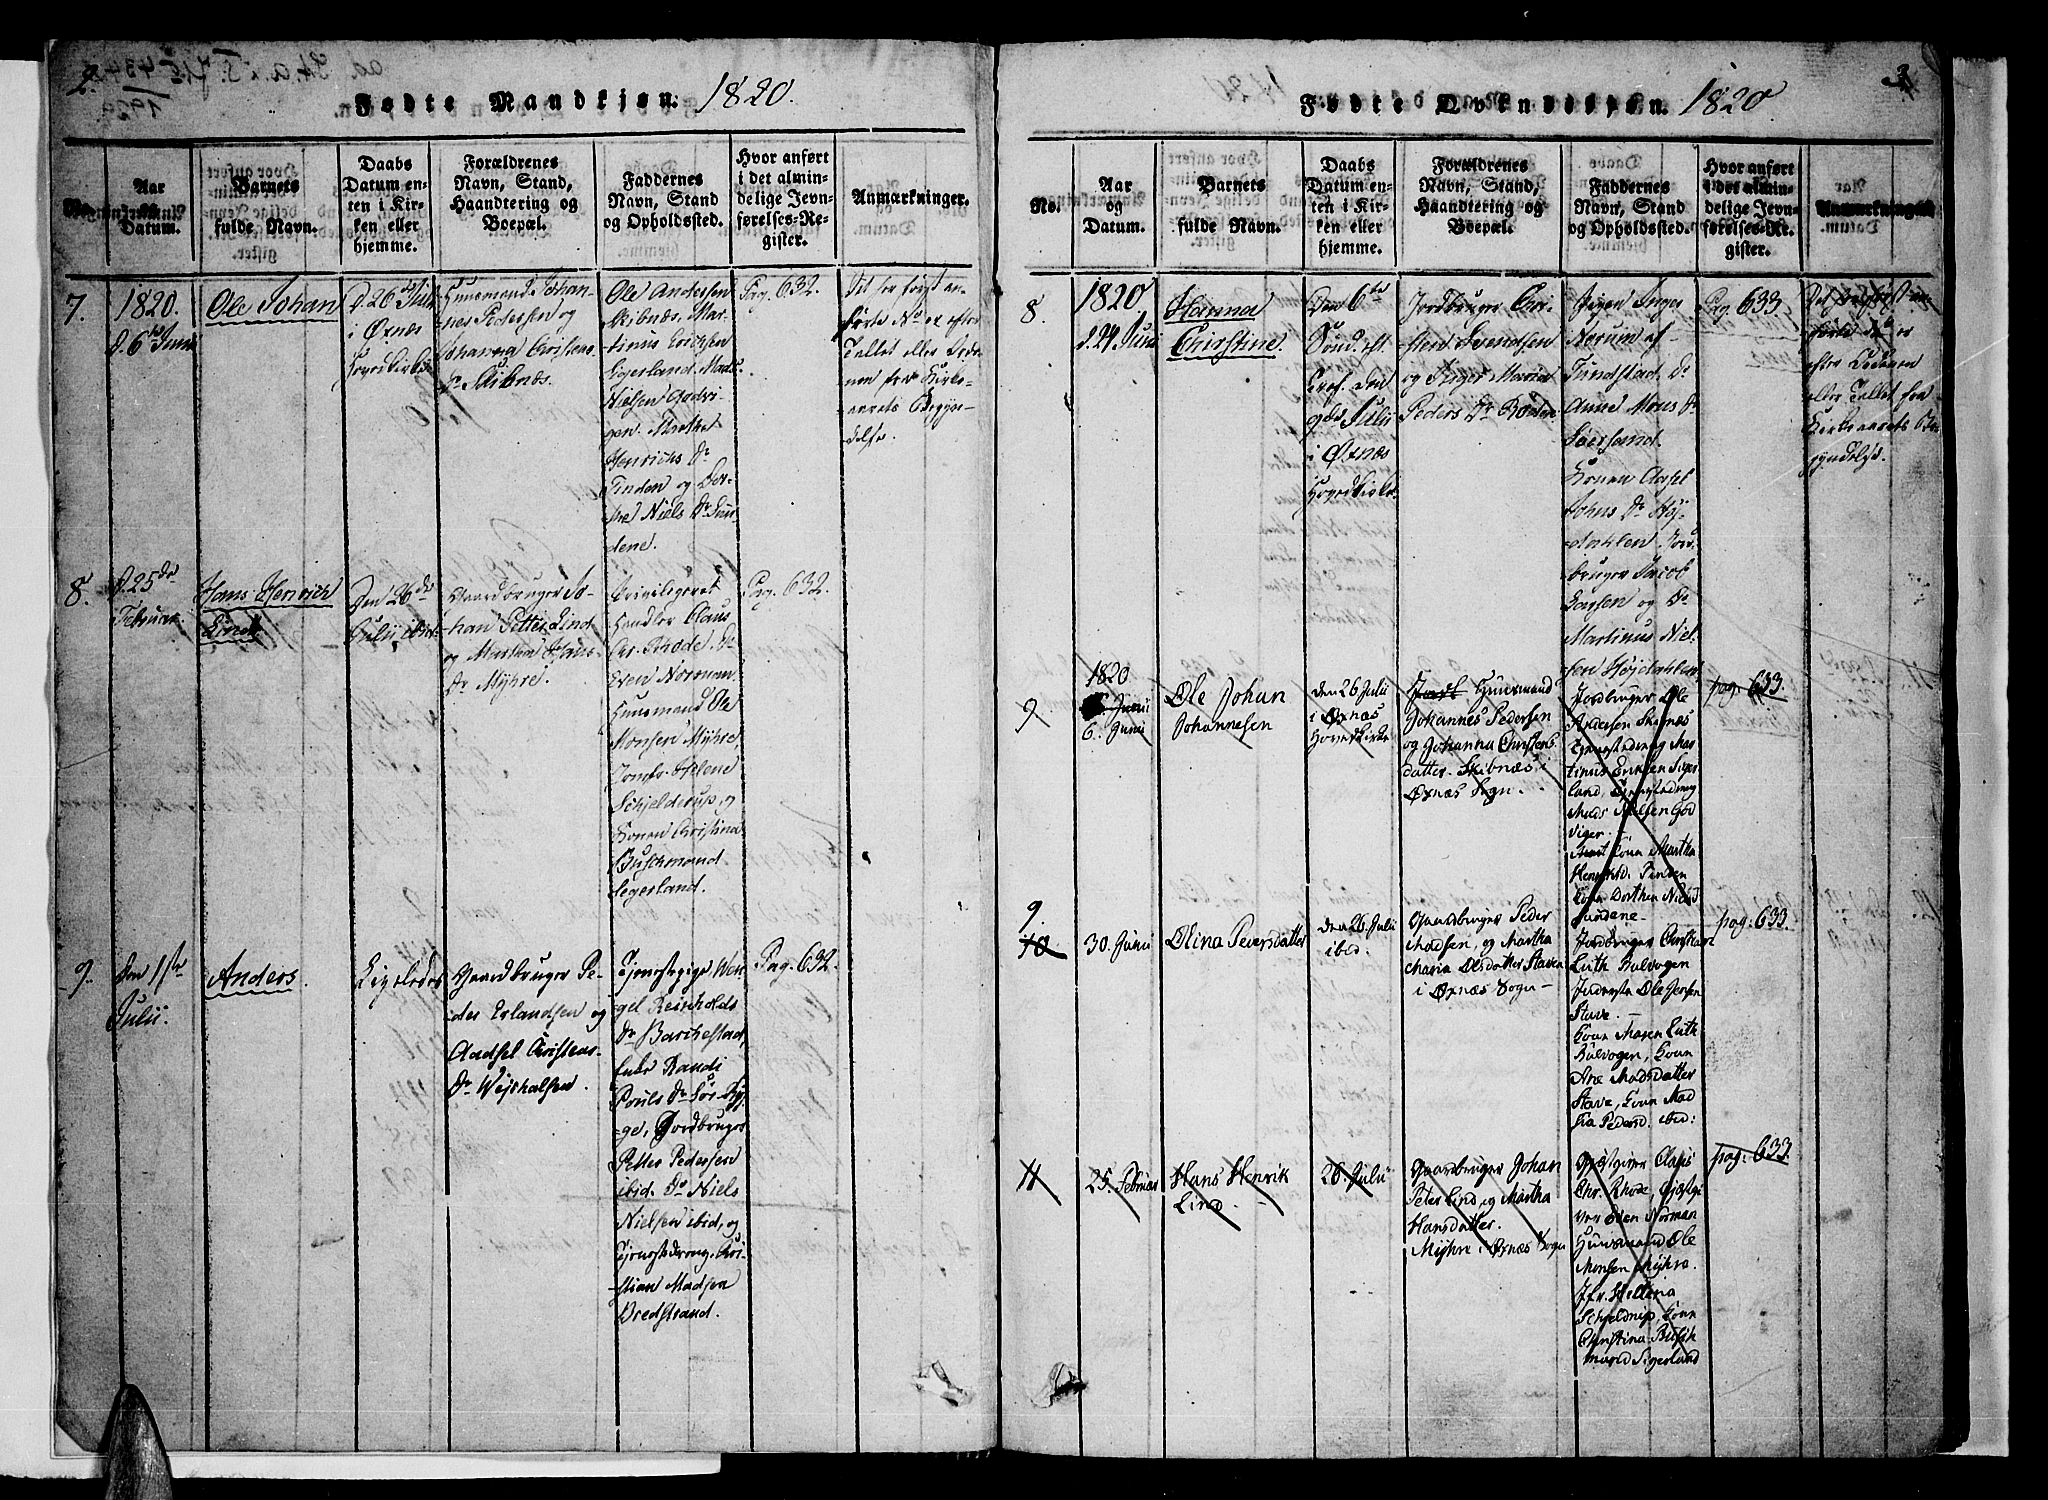 2.
Fødte Mandkjøn. 1820.
No.
Aar
og
Datum.
Barnets
fulde Navn.
Daabs
Datum en-
ten i Kir-
ken eller
hjemme.
Forældrenes
Navn, Stand,
Haandtering og
Boepæl.
Faddernes
Navn, Stand
og Opholdssted.
Hvor anført
i det almin-
delige Jevn-
førelses-Re-
gister.
Anmærkninger.
7.
1820.
d. 6te Junii
Ole Johan
d. 26de Julii
i Øxnæs
Hovedkirke
Huusmand Johan-
nes Pedersen og
Johanna Christens
Dr Skibnæs.
Ole Andersen
Skibnæs. Mar-
tinus Erichsen
Sigerland. Mads
Nielsen Godvi-
gen. Marthe
Henrichs Dr
Tinden og Dor-
the Niels Dr Sun-
dene.
Pag. 632.
Det her først an-
førte No er efter
Tallet eller Orde-
nen fra Kirke-
aarets Begyn-
delse.
8.
d. 25de
Februar.
Hans Henrich
Lind.
Den 26de
Julii ibid.
Gaardbruger Jo-
han Petter Lind
og Martha Hans-
Dr Myhre.
Privilegeret
Handler Claus
Chr. Rhode
Even Norman
Huusmand Ole
Monsen Myhre,
Jomfr. Helene
Schjelderup, og
Konen Christina
Buschmand
Segerland.
Pag. 632.
9.
Den 1ste
Julii.
Anders.
Ligeledes
Gaardbruger Pe-
der Erlandsen og
Aadsel Christens-
Dr Wejshalsen.
Tjenestepige Wen-
gel Reinholds
Dr Barchestad,
Enke Randi
Pouls Dr Sør-Byg-
ge, Jordbruger
Petter Pedersen
ibid. Do Niels
Nielsen ibid, og
Tjenestedreng Chri-
stian Madsen
Bredstrand.
Pag. 632.
3
Fødte Qvindekjøn. 1820
No.
Aar
og
Datum.
Barnets
fulde Navn.
Daabs
Datum en-
ten i Kir-
ken eller
hjemme.
Forældrenes
Navn, Stand,
Haandtering og
Boepæl.
Faddernes
Navn, Stand
og Opholdssted.
Hvor anført
i det almin-
delige Jevn-
førelses-Re-
gister.
Anmærkninger.
8.
1820
d. 24. Juni
Hanna
Christine.
Den 6te
Sønd. eft.
Tref. den
9de Julii
i Øxnæs
Hovedkirke
Jordbruger Chri-
sten Svendsen
og Inger Maria
Peders Dr Roden
Pigen Inger
Norum af
Tundstad. Do
Anne Mons Dr
Sørsand.
Konen Axsel
Johns Dr Høj-
dahlen. Jord-
bruger Jacob
Larsen og Do
Martinus Niel-
sen Højdahlen.
Pag. 633
Det her først an-
førte No er
efter Ordenen
eller Tallet fra
Kirkeaarets Be-
gyndelse.
9
1820
6. Junii
Ole Johan
Johannesen
den 26 Julii
i Øxnæs
Hovedkirke
Huusmand
Johannes Pedersen
og Johanna Christens
datter. Skibnæs i
Øxnæs Sogn.
Jordbruger Ole
Andersen Skibnæs
Tjenestedreng Mar-
tinus Eriksen Siger-
land, Tjenestedreng
Mads Nielsen God
viger.
Kone Martha
Henriksd. Tinden
Kone Dorthea Nielsd
Sundene
pag: 633.
9.
10
30. Junii
Olina Pedersdatter
den 26. Julii
ibid.
Gaardbruger Peder
Madsen, og Martha
Maria Olsdatter Staven
i Øxnæs Sogn
Jordbruger Christian
Luth Kalvogen
Inderste Ole Jensen
Stave.
Kone Maren Luth
Kalvogen, Kone
Ane Madsdatter
Stave, Kone Mad
sia Pedersd. ibid:
pag: 633.
11
25. Februar
Hans Henrik
Lind.
26. Julii
Gaardbruger Johan
Peter Lind, og Martha
Hansdatter.
Myhre i Øxnæs Sogn
Gjæstgiver Claus
Chr. Rhode, Gjæstgi
ver Even Norman
Huusmand Ole
Monsen Myhre.
Jfr. Hellena
Schjeldrup, Kone
Christina Busk
mand Sigerland
pag: 633.